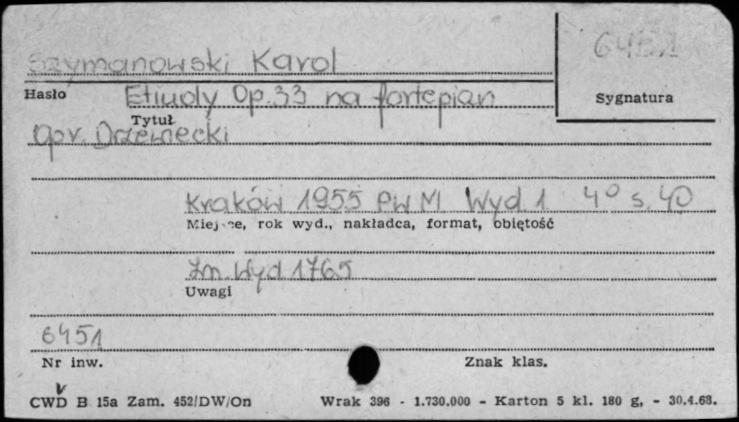 6451
Szymanowski Karol
Hasło
Etiudy Op.33 na fortepian
Sygnatura
Tytuł
opr. Drzewiecki
Kraków 1955 PWM Wyd 1 4° s. 40
Miejsce, rok wyd., nakładca, format, objętość
Zn. Wyd 1765
Uwagi
6451
Nr inw.
Znak klas.
CWD B 15a Zam. 452/DW/On Wrak 396 - 1.730.000 - Karton 5 kl. 180 g, - 30.4.68.